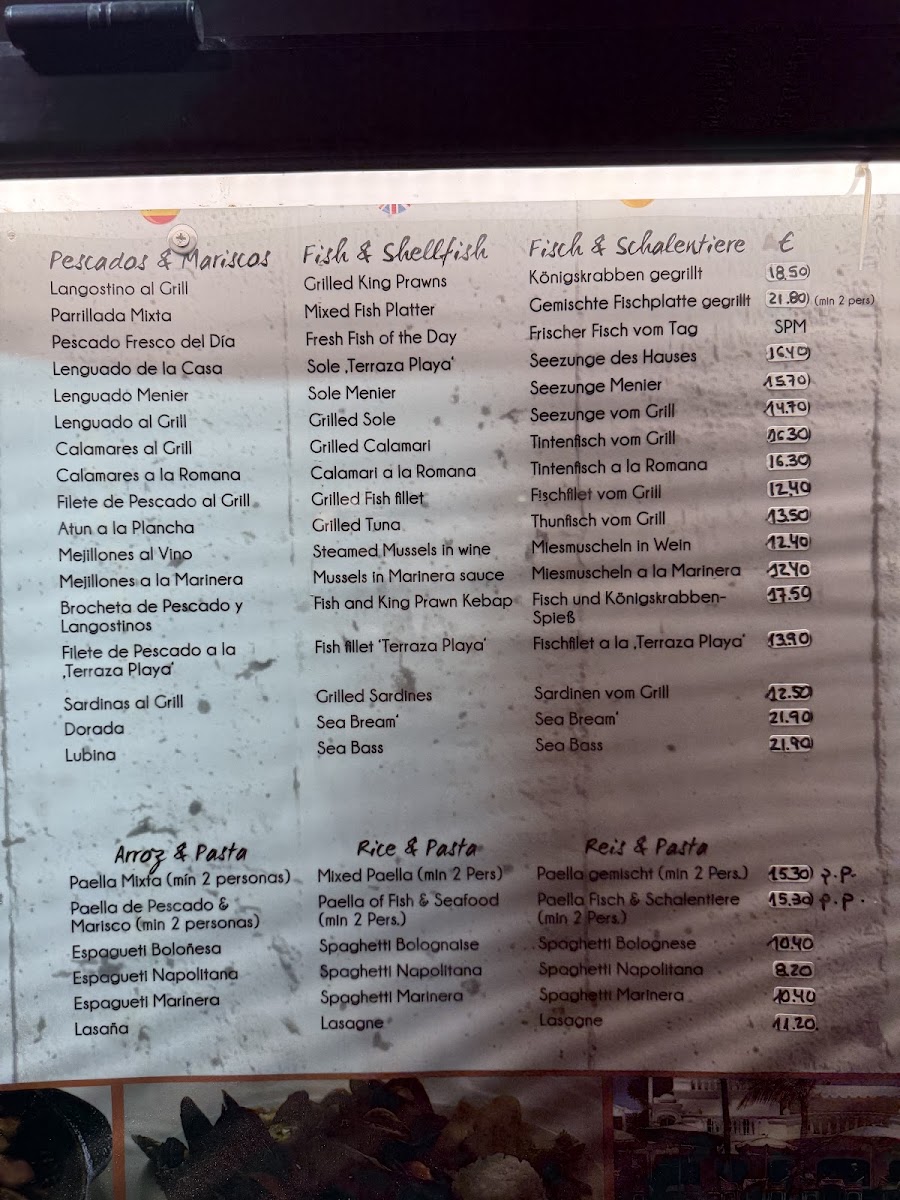 Pescados & Mariscos Fish & Shellfish Fisch & Schalentiere €
Langostino al Grill Grilled King Prawns Königskrabben gegrillt 18.50
Parrillada Mixta Mixed Fish Platter Gemischte Fischplatte gegrillt 21.80 (min 2 pers)
Pescado Fresco del Día Fresh Fish of the Day Frischer Fisch vom Tag SPM
Lenguado de la Casa Sole ‚Terraza Playa' Seezunge des Hauses 16.40
Lenguado Menier Sole Menier Seezunge Menier 15.70
Lenguado al Grill Grilled Sole Seezunge vom Grill 14.70
Calamares al Grill Grilled Calamari Tintenfisch vom Grill 16.30
Calamares a la Romana Calamari a la Romana Tintenfisch a la Romana 16.30
Filete de Pescado al Grill Grilled Fish fillet Fischfilet vom Grill 12.40
Atun a la Plancha Grilled Tuna Thunfisch vom Grill 13.50
Mejillones al Vino Steamed Mussels in wine Miesmuscheln in Wein 12.40
Mejillones a la Marinera Mussels in Marinera sauce Miesmuscheln a la Marinera 12.40
Brocheta de Pescado y Fish and King Prawn Kebap Fisch und Königskrabben- 17.50
Langostinos Spieß
Filete de Pescado a la Fish fillet 'Terraza Playa' Fischfilet a la ‚Terraza Playa' 13.90
‚Terraza Playa'
Sardinas al Grill Grilled Sardines Sardinen vom Grill 12.50
Dorada Sea Bream' Sea Bream' 21.90
Lubina Sea Bass Sea Bass 21.90
Arroz & Pasta Rice & Pasta Reis & Pasta
Paella Mixta (mín 2 personas) Mixed Paella (min 2 Pers) Paella gemischt (min 2 Pers.) 15.30 p.P.
Paella de Pescado & Paella of Fish & Seafood Paella Fisch & Schalentiere 15.30 p.P.
Marisco (min 2 personas) (min 2 Pers.) (min 2 Pers.)
Espagueti Boloñesa Spaghetti Bolognaise Spaghetti Bolognese 10.40
Espagueti Napolitana Spaghetti Napolitana Spaghetti Napolitana 8.20
Espagueti Marinera Spaghetti Marinera Spaghetti Marinera 10.40
Lasaña Lasagne Lasagne 11.20